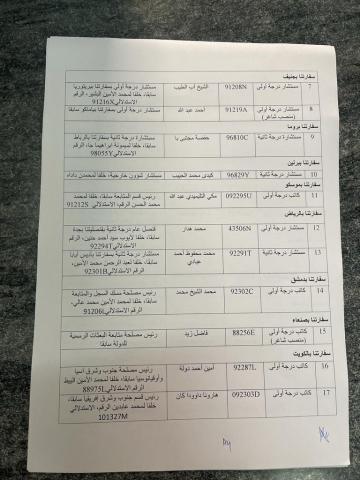 سفارتنا بجنيف
7 مستشار درجة أولى 91208N الشيخ أب الطيب مستشار درجة أولى بسفارتنا ببريتوريا
سابقا، خلفا لمحمد الأمين البشير، الرقم
الاستدلالي 91216X
8 مستشار درجة أولى 91219A أحمد عبد الله مستشار درجة أولى بسفارتنا بباماكو سابقا
(منصب شاغر)
سفارتنا بروما
9 مستشارة درجة ثانية 96810C حفصة مجتبى با مستشارة درجة ثانية بسفارتنا بالرباط
سابقا، خلفا لميمونة ابراهيما جا، الرقم
الاستدلالي 98055Y
سفارتنا ببرلين
10 مستشار درجة ثانية 96829Y كبدي محمد الحبيب مستشار لشؤون خارجية، خلفا لمحمدن داداه
سفارتنا بموسكو
11 كاتب درجة أولى 092295U مكي التلميدي عبد الله رئيس قسم المتابعة سابقا، خلفا لمحمد
محمد الحسن الرقم، الاستدلالي 91212S
سفارتنا بالرياض
12 مستشار درجة أولى 43506N محمد هدار قنصل عام درجة ثانية بقنصليتنا بجدة
سابقا، خلفا لأيوب سيد أحمد حنين، الرقم
الاستدلالي 92294T
13 مستشار درجة ثانية 92291T محمد محفوظ أحمد مستشار درجة ثانية بسفارتنا بأديس أبابا
عبادي سابقا، خلفا لعبد الرحمن محمد الأمين،
الرقم الاستدلالي 92301B
سفارتنا بدمشق
14 كاتب درجة أولى 92302C محمد الشيخ محمد رئيس مصلحة مسك السجل والمتابعة
سابقا، خلفا لمحمد الأمين محمد عالي،
الرقم الاستدلالي 91206L
سفارتنا بصنعاء
15 كاتب درجة أولى 88256E فاضل زيد رئيس مصلحة متابعة البعثات الرسمية
(منصب شاغر) للدولة سابقا
سفارتنا بالكويت
16 كاتب درجة أولى 92287L أمين أحمد دولة رئيس مصلحة جنوب وشرق آسيا
وأوقيانوسيا سابقا، خلفا لمحمد الأمين البيط
الرقم الاستدلالي 88975L
17 كاتب درجة أولى 092303D هارونا داوودا كان رئيس قسم جنوب وشرق إفريقيا سابقا،
خلفا لمحمد عابدين الرقم، الاستدلالي
101327M